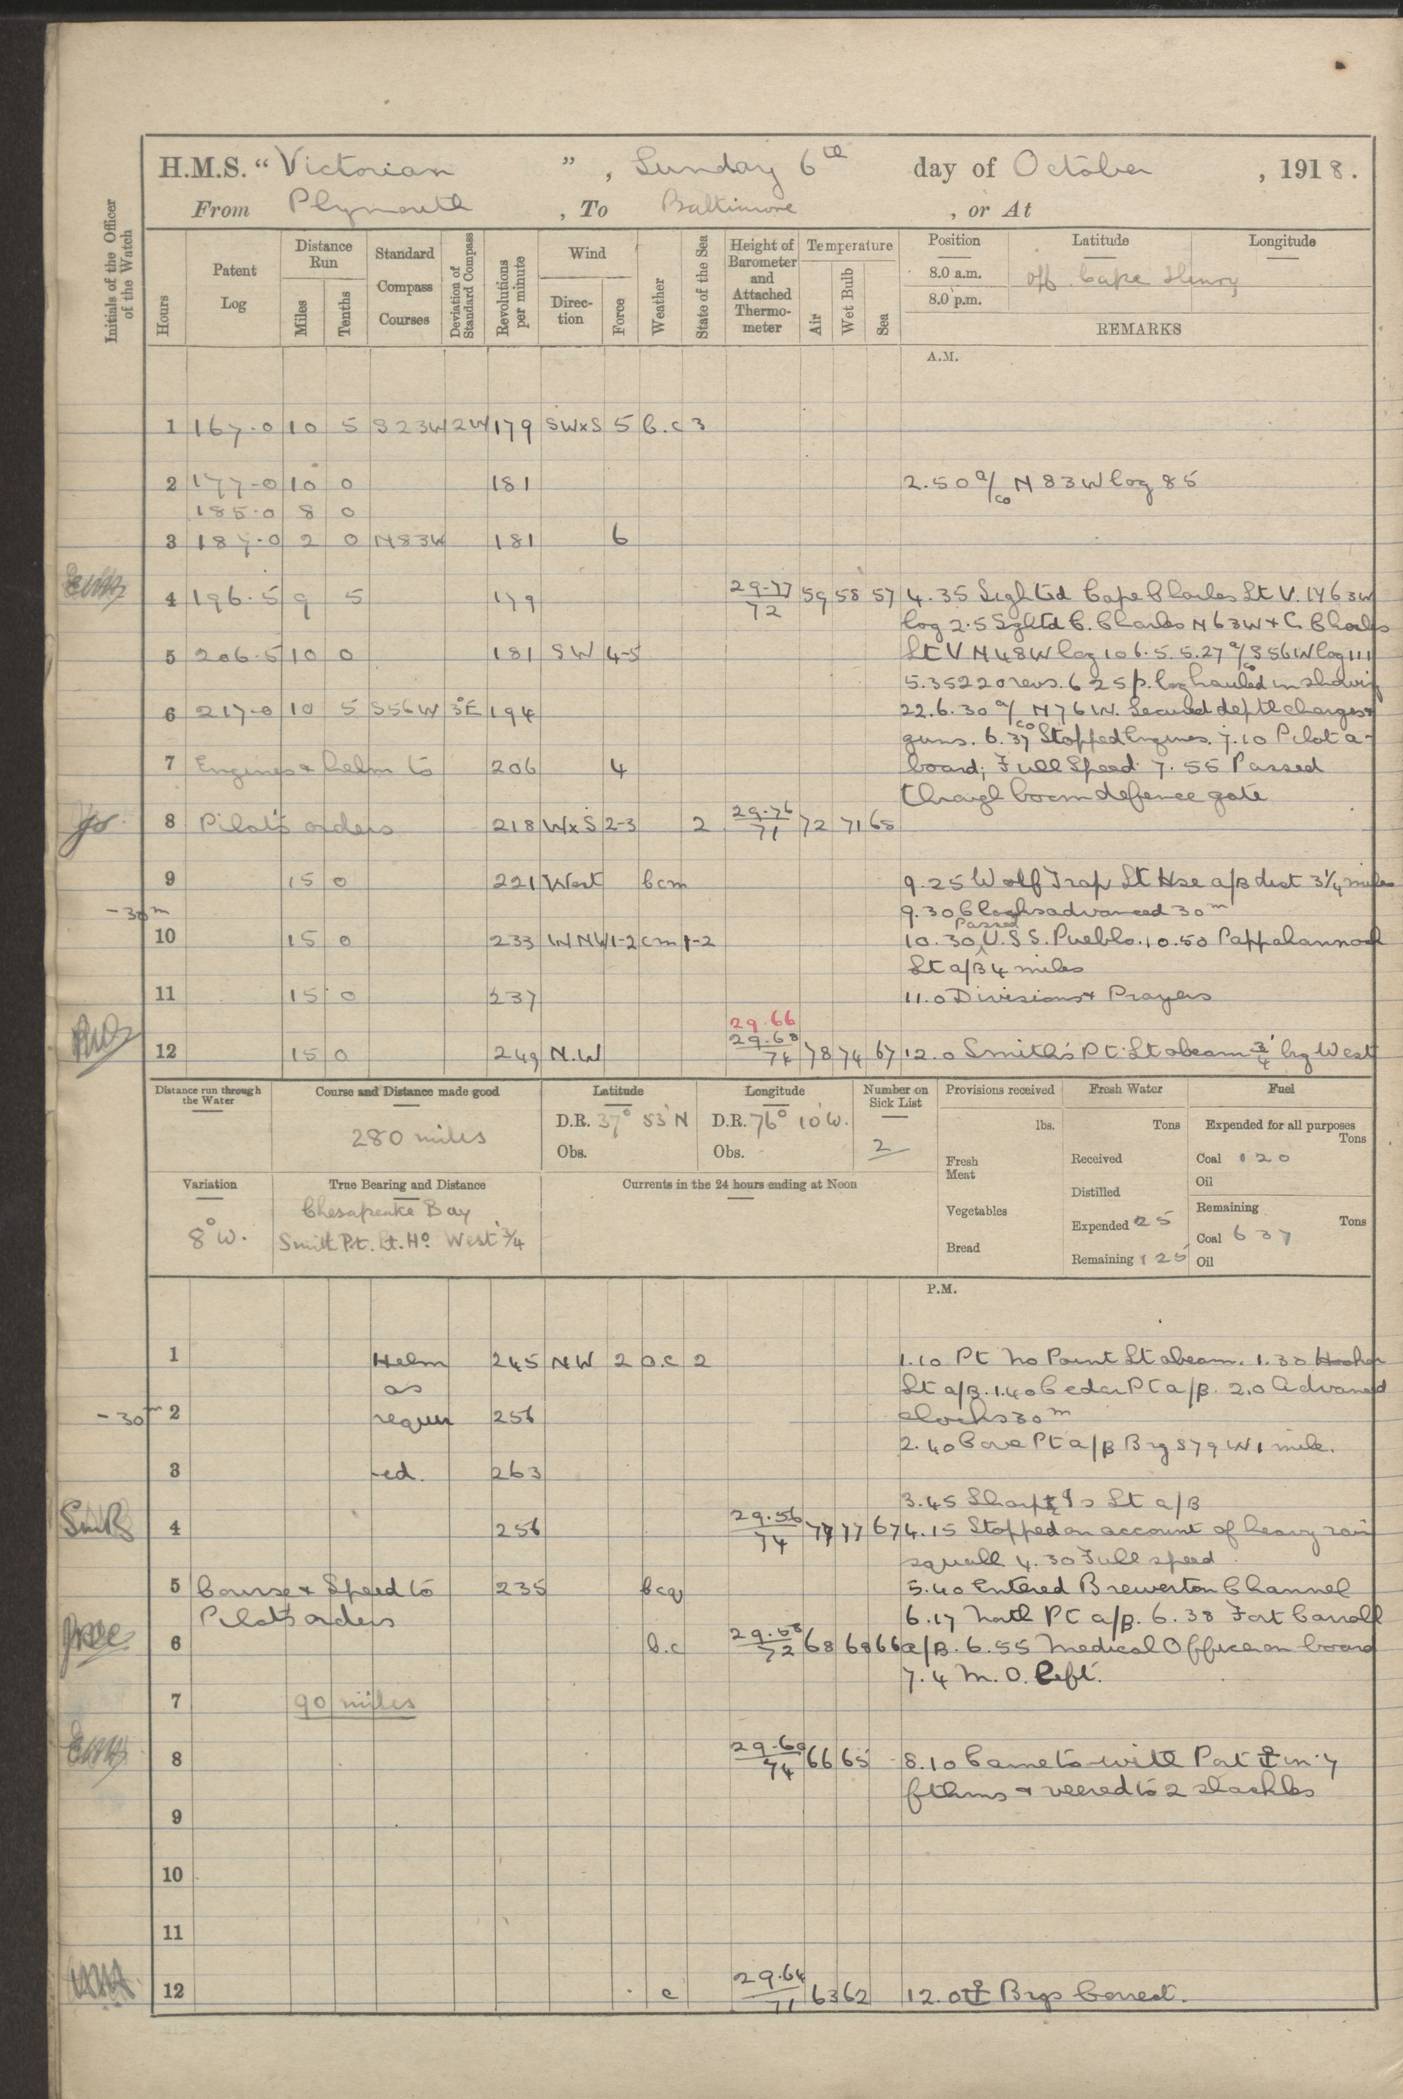 H.M.S. “Victorian ”, Sunday 6th day of October , 1918.
From Plymouth , To Baltimore , or At
Initials of the Officer of the Watch
Hours
Patent Log
Distance Run
Miles
Tenths
Standard Compass Courses
Deviation of Standard Compass
Revolutions per minute
Wind
Direc- tion
Force
Weather
State of the Sea
Height of Barometer and Attached Thermo- meter
Temperature
Air
Wet Bulb
Sea
Position Latitude Longitude
8.0 a.m. off Cape Henry
8.0 p.m.
REMARKS
A.M.
1 167.0 10 5 S23W 2W 179 SWxS 5 b.c 3
2 177.0 10 0 181 2.50 a/co N83W log 85
185.0 8 0
3 187.0 2 0 N83W 181 6
4 196.5 9 5 179 29.77/72 59 58 57 4.35 Sighted Cape Charles Lt V. N63W
log 2.5 Sghtd C. Charles N63W + C. Charles
5 206.5 10 0 181 SW 4-5 Lt V N48W log 106.5. 5.27 a/co S56W log 111
5.35 220 revs. 6.25 p. log hauled in showing
6 217.0 10 5 S56W 3°E 194 22. 6.30 a/co N76W. Secured depth charges +
guns. 6.37 Stopped Engines. 7.10 Pilot a-
7 Engines & helm to 206 4 board; Full Speed. 7.55 Passed
through boom defence gate
8 Pilot's orders 218 WxS 2-3 2 29.76/71 72 71 68
9 15 0 221 West bcm 9.25 Wolf Trap Lt Hse a/B dist 3¼ miles
-30m 9.30 Clocks advanced 30m
10 15 0 233 WNW 1-2 cm 1-2 10.30 Passed U.S.S. Pueblo. 10.50 Pappahannock
Lt a/B 4 miles
11 15 0 237 11.0 Divisions & Prayers
29.66
12 15 0 249 N.W 29.68/74 78 74 67 12.0 Smith's Pt. Lt abeam ¾' brg West
Distance run through the Water
Course and Distance made good
280 miles
Latitude
D.R. 37° 53' N
Obs.
Longitude
D.R. 76° 10' W.
Obs.
Number on Sick List
2
Provisions received
lbs.
Fresh Meat
Vegetables
Bread
Fresh Water
Tons
Received
Distilled
Expended 25
Remaining 125
Fuel
Expended for all purposes
Tons
Coal 120
Oil
Remaining
Tons
Coal 637
Oil
Variation
8° W.
True Bearing and Distance
Chesapeake Bay
Smith Pt. Lt. Ho West ¾'
Currents in the 24 hours ending at Noon
P.M.
1 Helm 245 NW 2 o.c 2 1.10 Pt no Point Lt abeam. 1.30 Hooker
as Lt a/B. 1.40 Cedar Pt a/B. 2.0 Advanced
-30m 2 requir 256 clocks 30m
2.40 Cove Pt a/B Brg S79W 1 mile.
3 -ed. 263
3.45 Sharps Is Lt a/B
4 256 29.56/74 77 77 67 4.15 Stopped on account of heavy rain
squall 4.30 Full speed.
5 Course & Speed to 235 bcq 5.40 Entered Brewerton Channel
Pilot's orders 6.17 North Pt a/B. 6.38 Fort Carroll
6 b.c 29.58/72 68 68 66 a/B. 6.55 Medical Officer on board
7.4 M.O. Left.
7 90 miles
8 29.60/74 66 65 8.10 Came to with Port ⚓ in 7
fthms & veered to 2 shackles
9
10
11
12 c 29.64/71 63 62 12.0 ⚓ Brgs Correct.